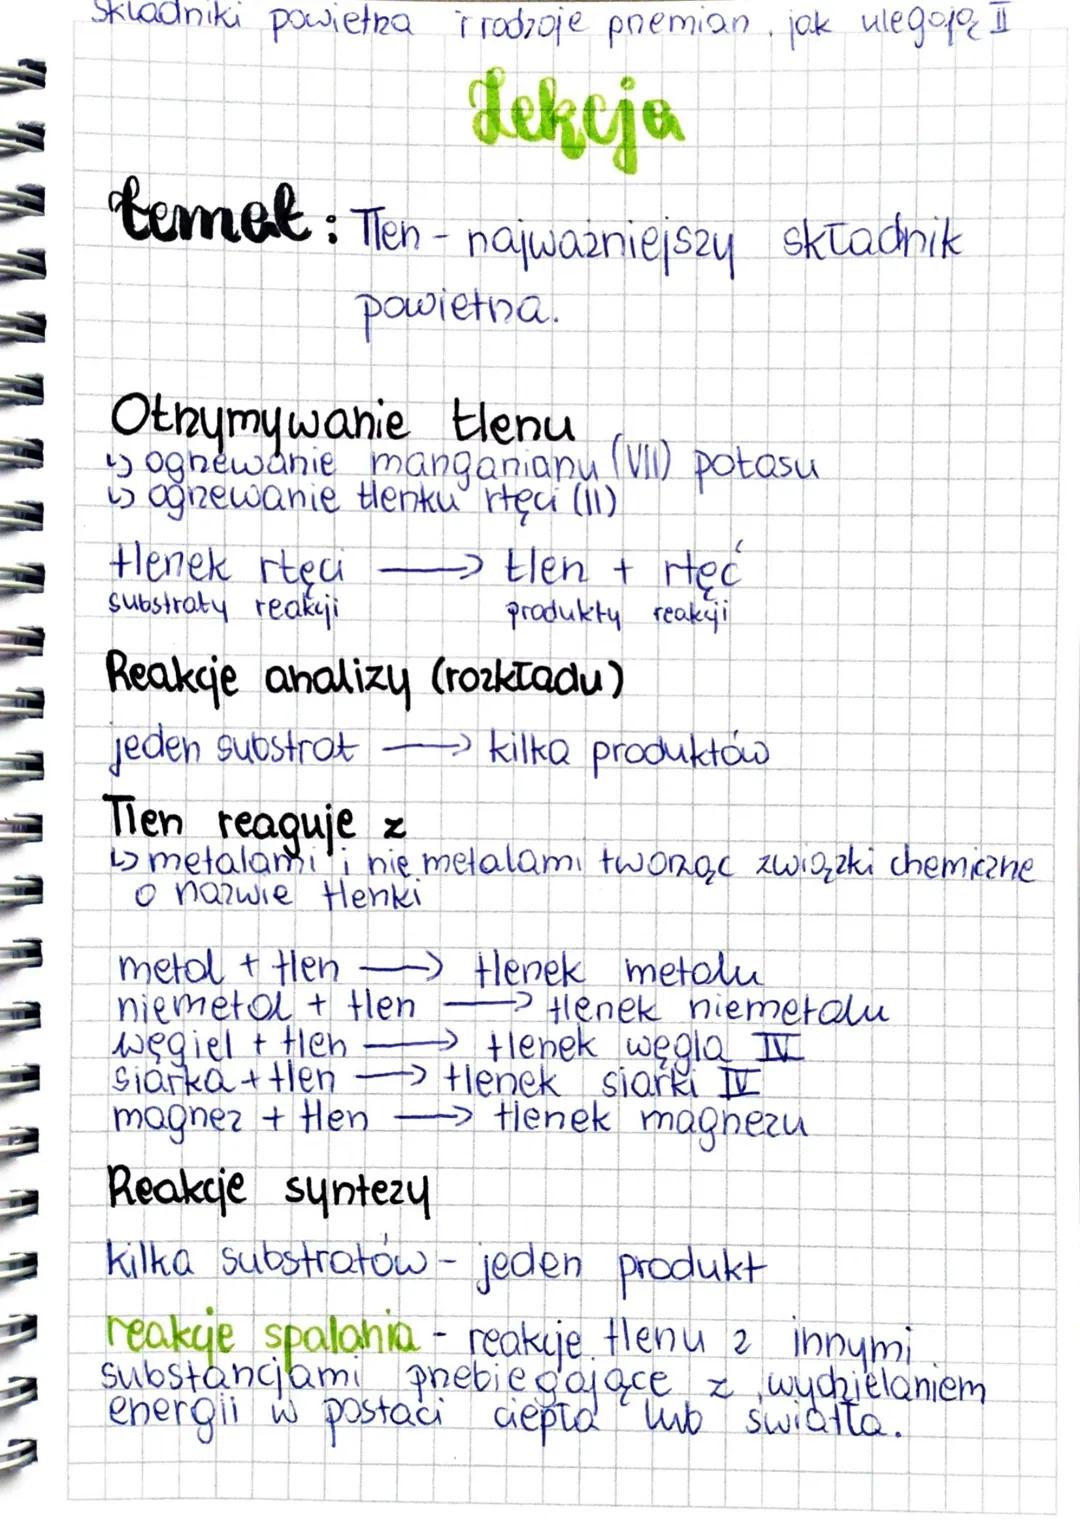 Składniki powietrza i rodzaje przemian, jak ulegają II
Lekcja
temat: Tlen - najważniejszy składnik
powietrza.
Otrzymywanie tlenu
↳ ogrzewanie manganianu (VII) potasu
↳ ogrzewanie tlenku rtęci (II)
tlenek rtęci ⟶ tlen + rtęć
substraty reakcji produkty reakcji
Reakcje analizy (rozkładu)
jeden substrat ⟶ kilka produktów
Tlen reaguje z
↳ metalami i nie metalami tworząc związki chemiczne
o nazwie tlenki
metal + tlen ⟶ tlenek metalu
niemetal + tlen ⟶ tlenek niemetalu
węgiel + tlen ⟶ tlenek węgla IV
siarka + tlen ⟶ tlenek siarki IV
magnez + tlen ⟶ tlenek magnezu
Reakcje syntezy
kilka substratów - jeden produkt
reakcje spalania - reakcje tlenu z innymi
substancjami przebiegające z wydzielaniem
energii w postaci ciepła lub światła.